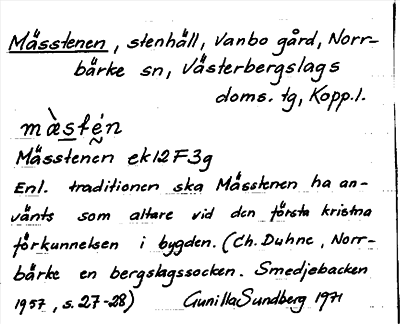 Mässtenen, stenhäll, Vanbo gård, Norr-
bärke sn, Västerbergslags
doms. tg, Kopp.l.
mæ̀stén
Mässtenen ek12F3g
Enl. traditionen ska Mässtenen ha an-
vänts som altare vid den första kristna
förkunnelsen i bygden. (Ch. Duhne, Norr-
bärke en bergslagssocken. Smedjebacken
1957, s. 27-28) Gunilla Sundberg 1971